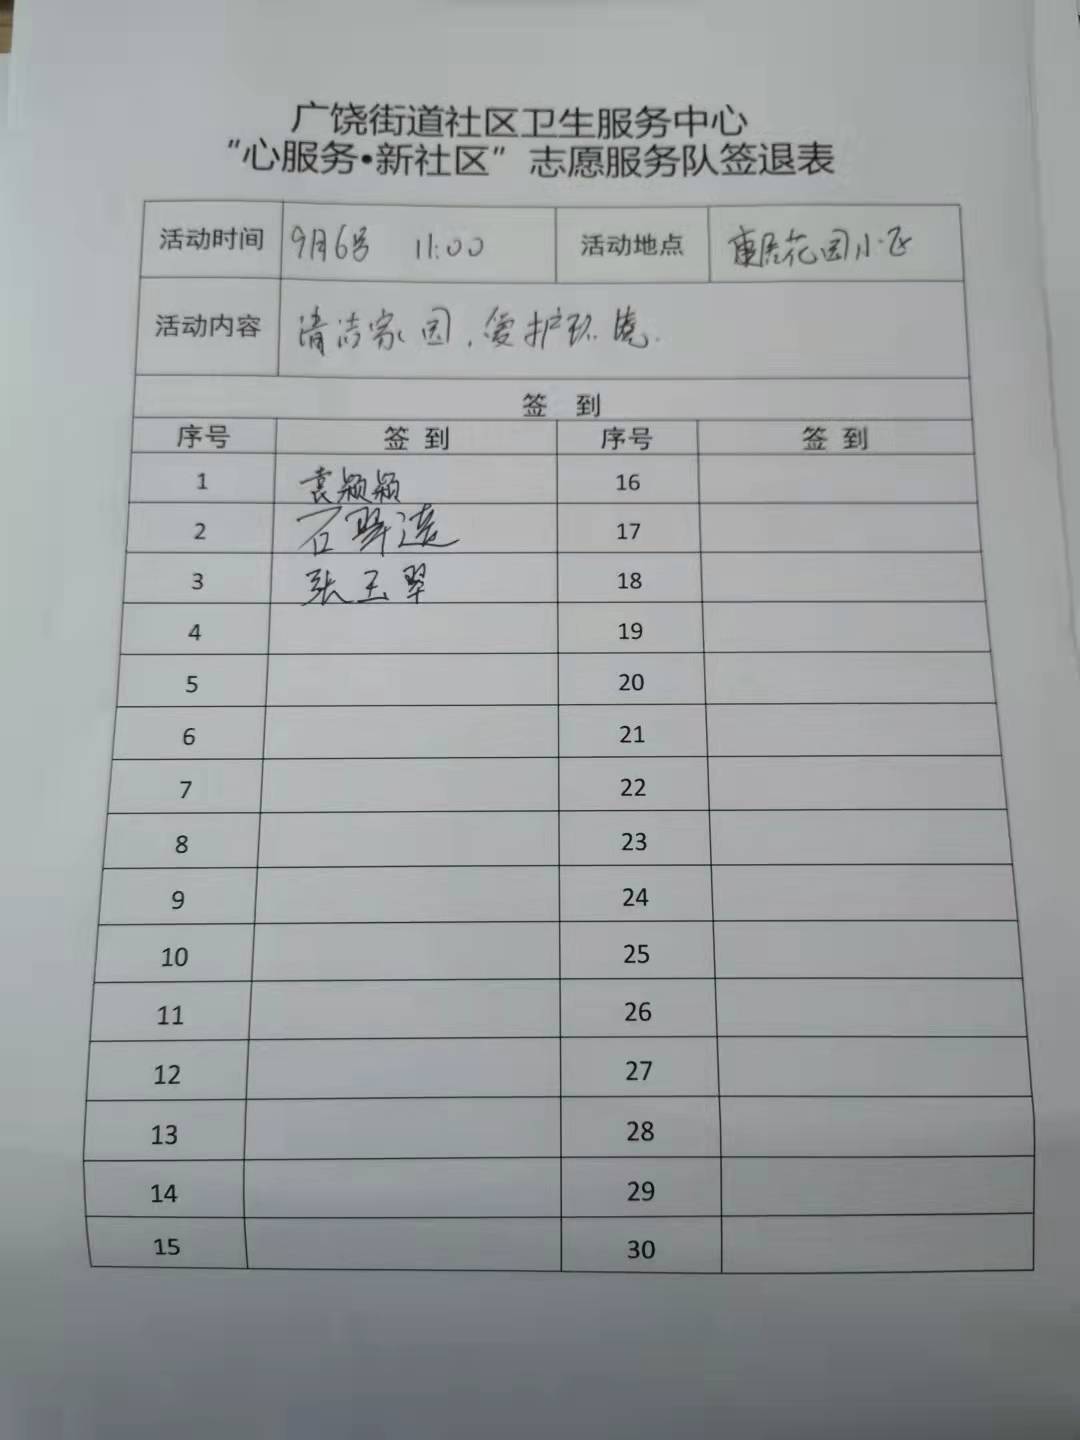 广饶街道社区卫生服务中心
“心服务•新社区”志愿服务队签退表
活动时间 9月6号 11:00 活动地点 花园小区
活动内容 清洁家园,爱护环境.
签 到
序号 签到 序号 签到
1 袁颖颖 16
2 石 17
3 张玉翠 18
4 19
5 20
6 21
7 22
8 23
9 24
10 25
11 26
12 27
13 28
14 29
15 30